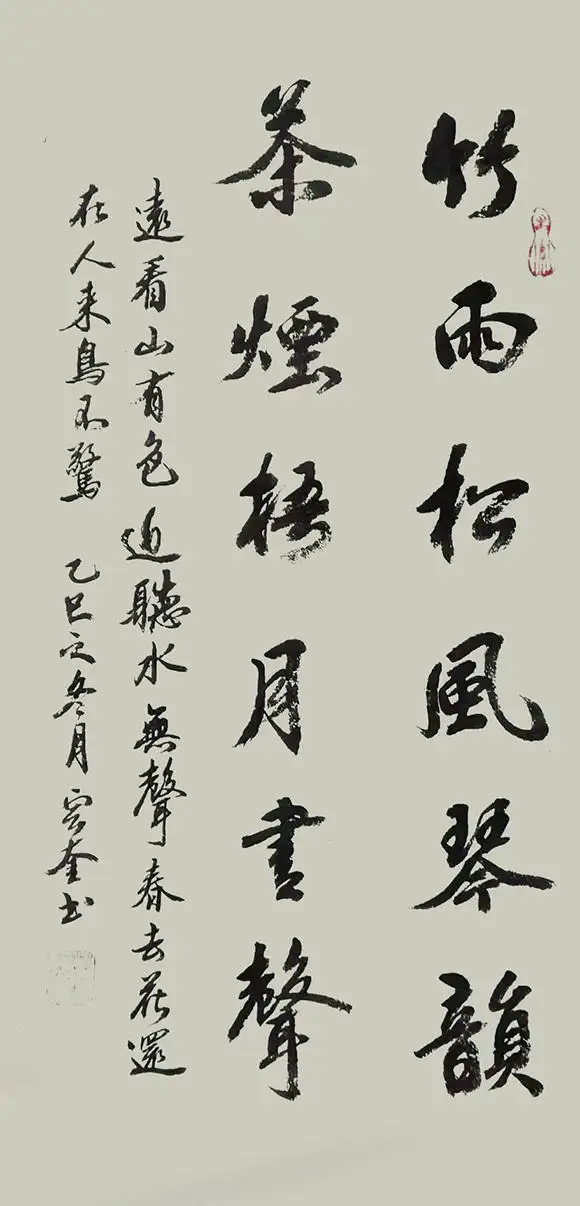 竹雨松風琴韻
茶煙梧月書聲
遠看山有色近聽水無聲春去花還
在人来鳥不驚 乙巳之冬月 宗奎书